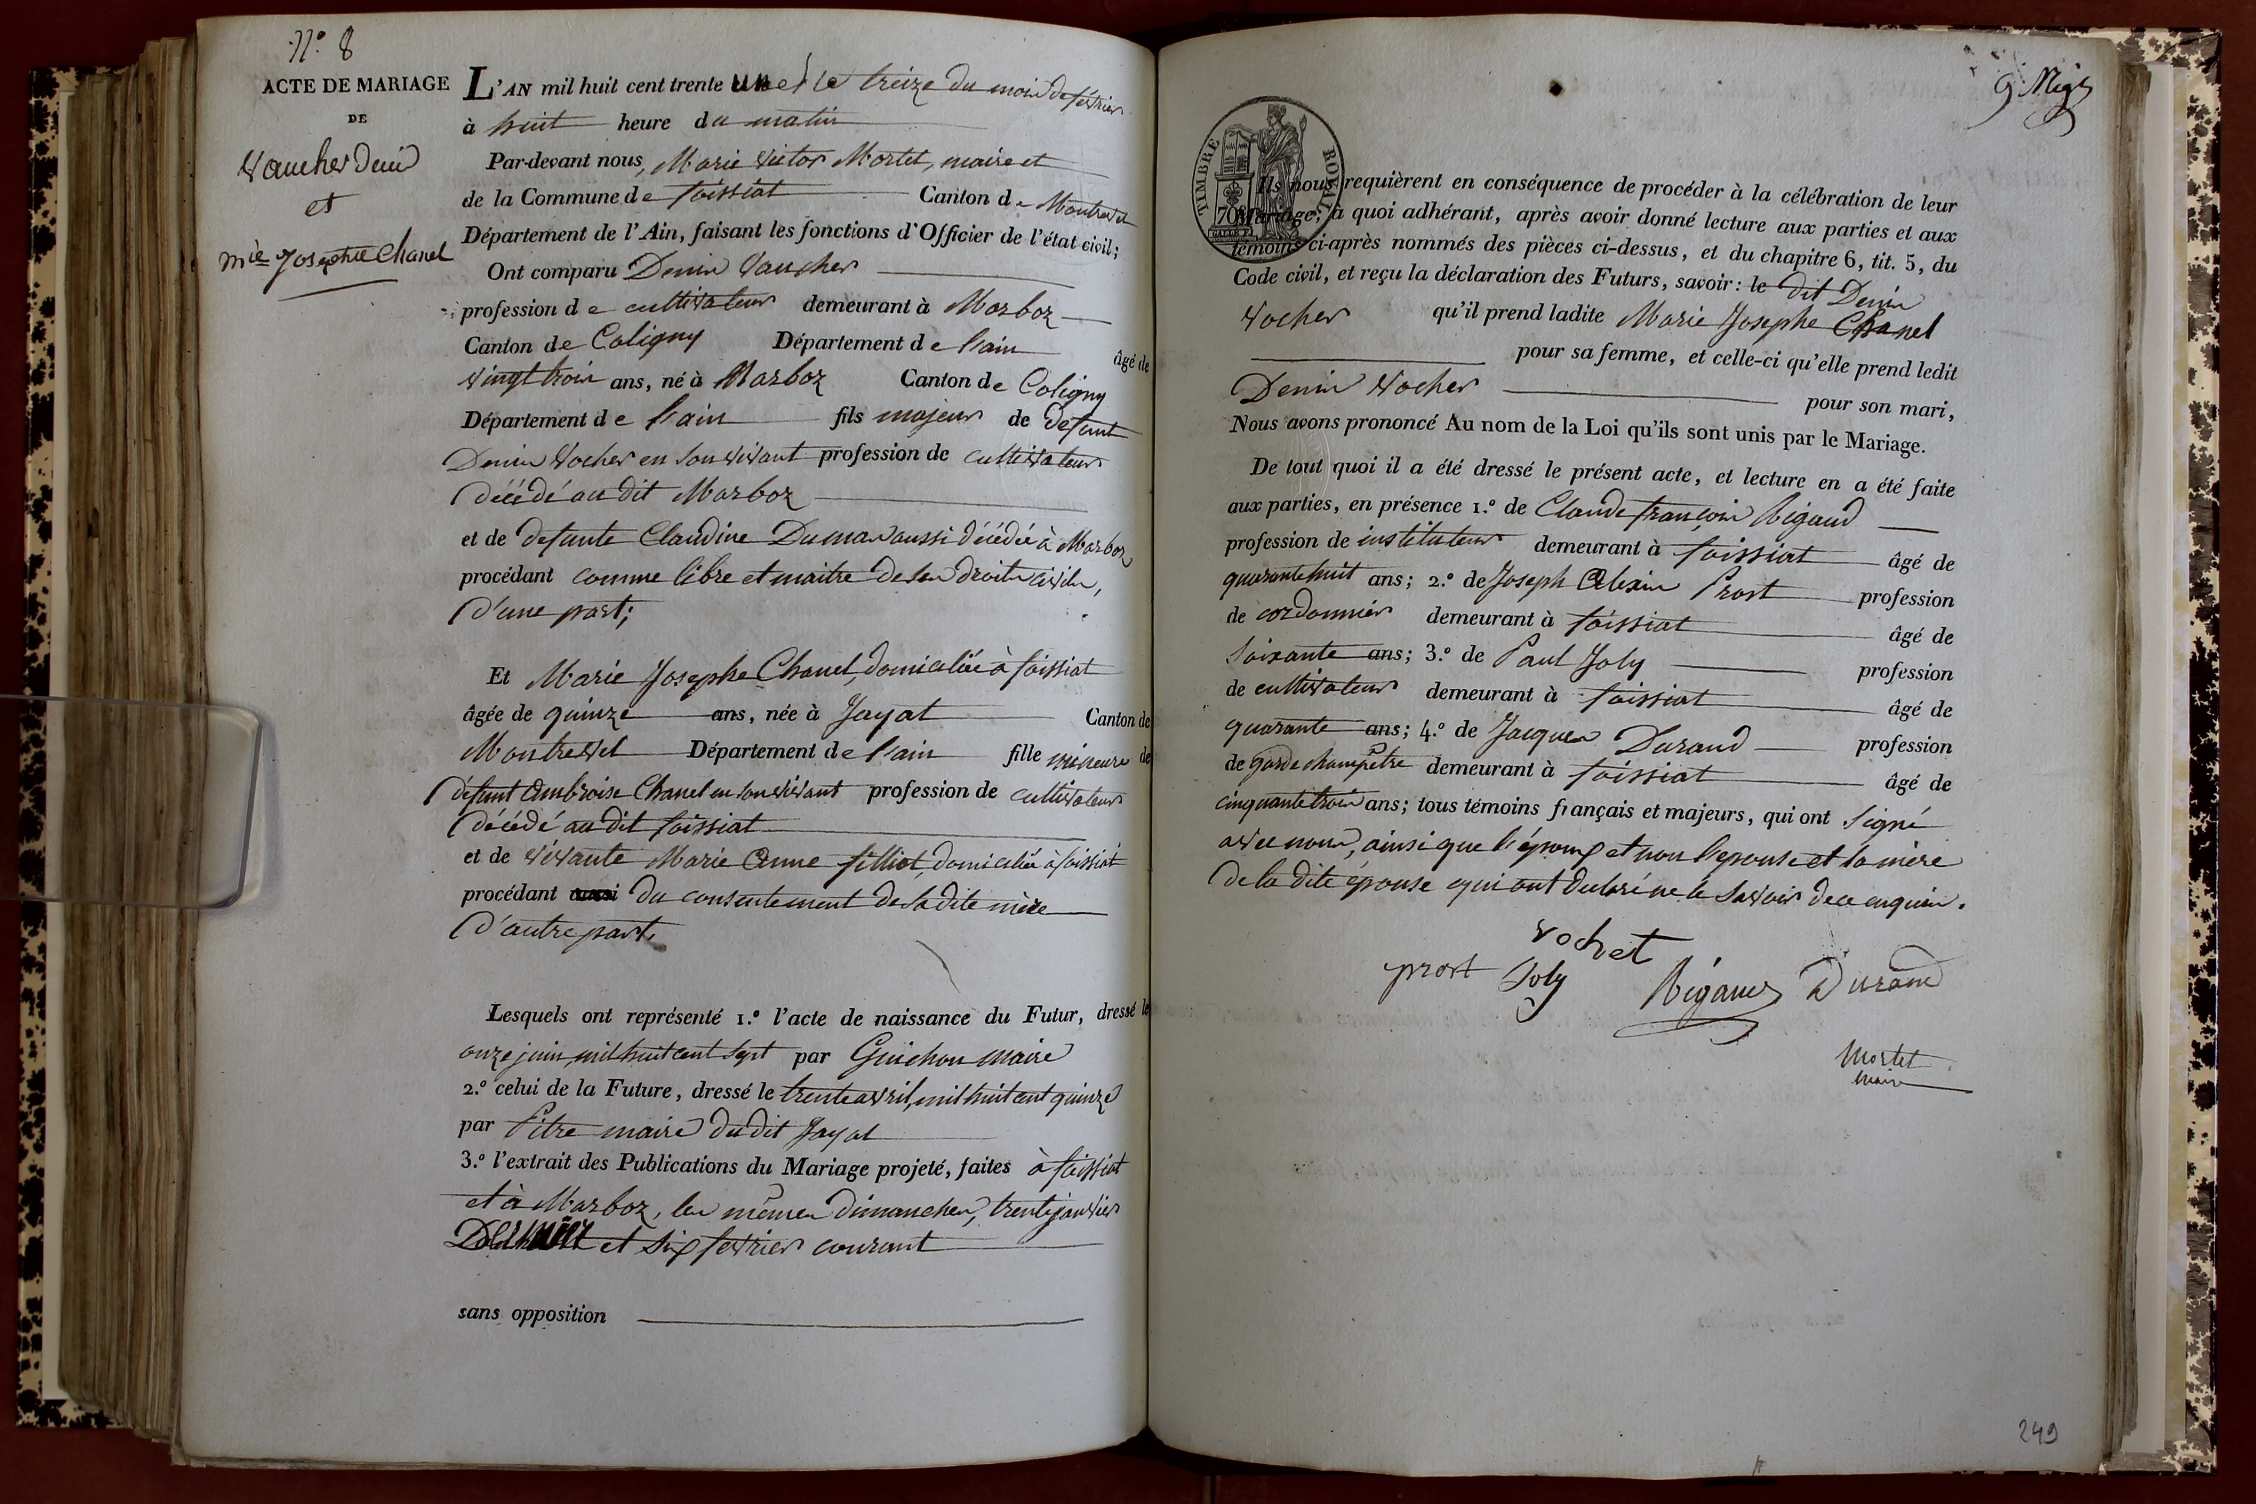 N.° 8
ACTE DE MARIAGE
DE
Vaucher Denis
et
Mie Josephte Chanel
L'AN mil huit cent trente un et le treize du mois de février
à huit heure du matin
Par-devant nous, Marie Victor Mortet, maire et
de la Commune de foissiat Canton de Montrevel
Département de l'Ain, faisant les fonctions d'Officier de l'état civil;
Ont comparu Denis Vaucher
profession de cultivateur demeurant à Marboz
Canton de Coligny Département de l'ain âgé de
vingt trois ans, né à Marboz Canton de Coligny
Département de l'ain fils majeur de defunt
Denis Vocher en son vivant profession de cultivateur
décédé au dit Marboz
et de defunte Claudine Dumas aussi décédée à Marboz
procédant comme libre et maitre de ses droits civils,
d'une part;
Et Marie Josephe Chanel, domiciliée à foissiat
âgée de quinze ans, née à Jayat Canton de
Montrevel Département de l'ain fille mineure de
défunt Ambroise Chanel en son vivant profession de cultivateur
décédé au dit foissiat
et de vivante Marie Anne filliot, domiciliée à foissiat
procédant du consentement de sa dite mère
d'autre part,
Lesquels ont représenté 1.° l'acte de naissance du Futur, dressé le
onze juin mil huit cent sept par Guichon maire
2.° celui de la Future, dressé le trente avril, mil huit cent quinze
par Pitre maire du dit Jayat
3.° l'extrait des Publications du Mariage projeté, faites à foissiat
et à Marboz, les mêmes dimanches, trente janvier
Dernier et six fevrier courant
sans opposition
9.e
TIMBRE ROYAL
70
Ils nous requièrent en conséquence de procéder à la célébration de leur
Mariage; à quoi adhérant, après avoir donné lecture aux parties et aux
témoins ci-après nommés des pièces ci-dessus, et du chapitre 6, tit. 5, du
Code civil, et reçu la déclaration des Futurs, savoir: le dit Denis
Vocher qu'il prend ladite Marie Josephe Chanel
pour sa femme, et celle-ci qu'elle prend ledit
Denis Vocher pour son mari,
Nous avons prononcé Au nom de la Loi qu'ils sont unis par le Mariage.
De tout quoi il a été dressé le présent acte, et lecture en a été faite
aux parties, en présence 1.° de Claude françois Rigaud
profession de instituteur demeurant à foissiat âgé de
quarante huit ans; 2.° de Joseph Alexis Prost profession
de cordonnier demeurant à foissiat âgé de
soixante ans; 3.° de Paul Joly profession
de cultivateur demeurant à foissiat âgé de
quarante ans; 4.° de Jacques Durand profession
de garde champêtre demeurant à foissiat âgé de
cinquante trois ans; tous témoins français et majeurs, qui ont signé
avec nous, ainsi que l'époux et non l'epouse et la mère
de la dite épouse qui ont declaré ne le savoir de ce enquis.
vochet
prost Joly Rigaud Durand
Mortet
maire
249